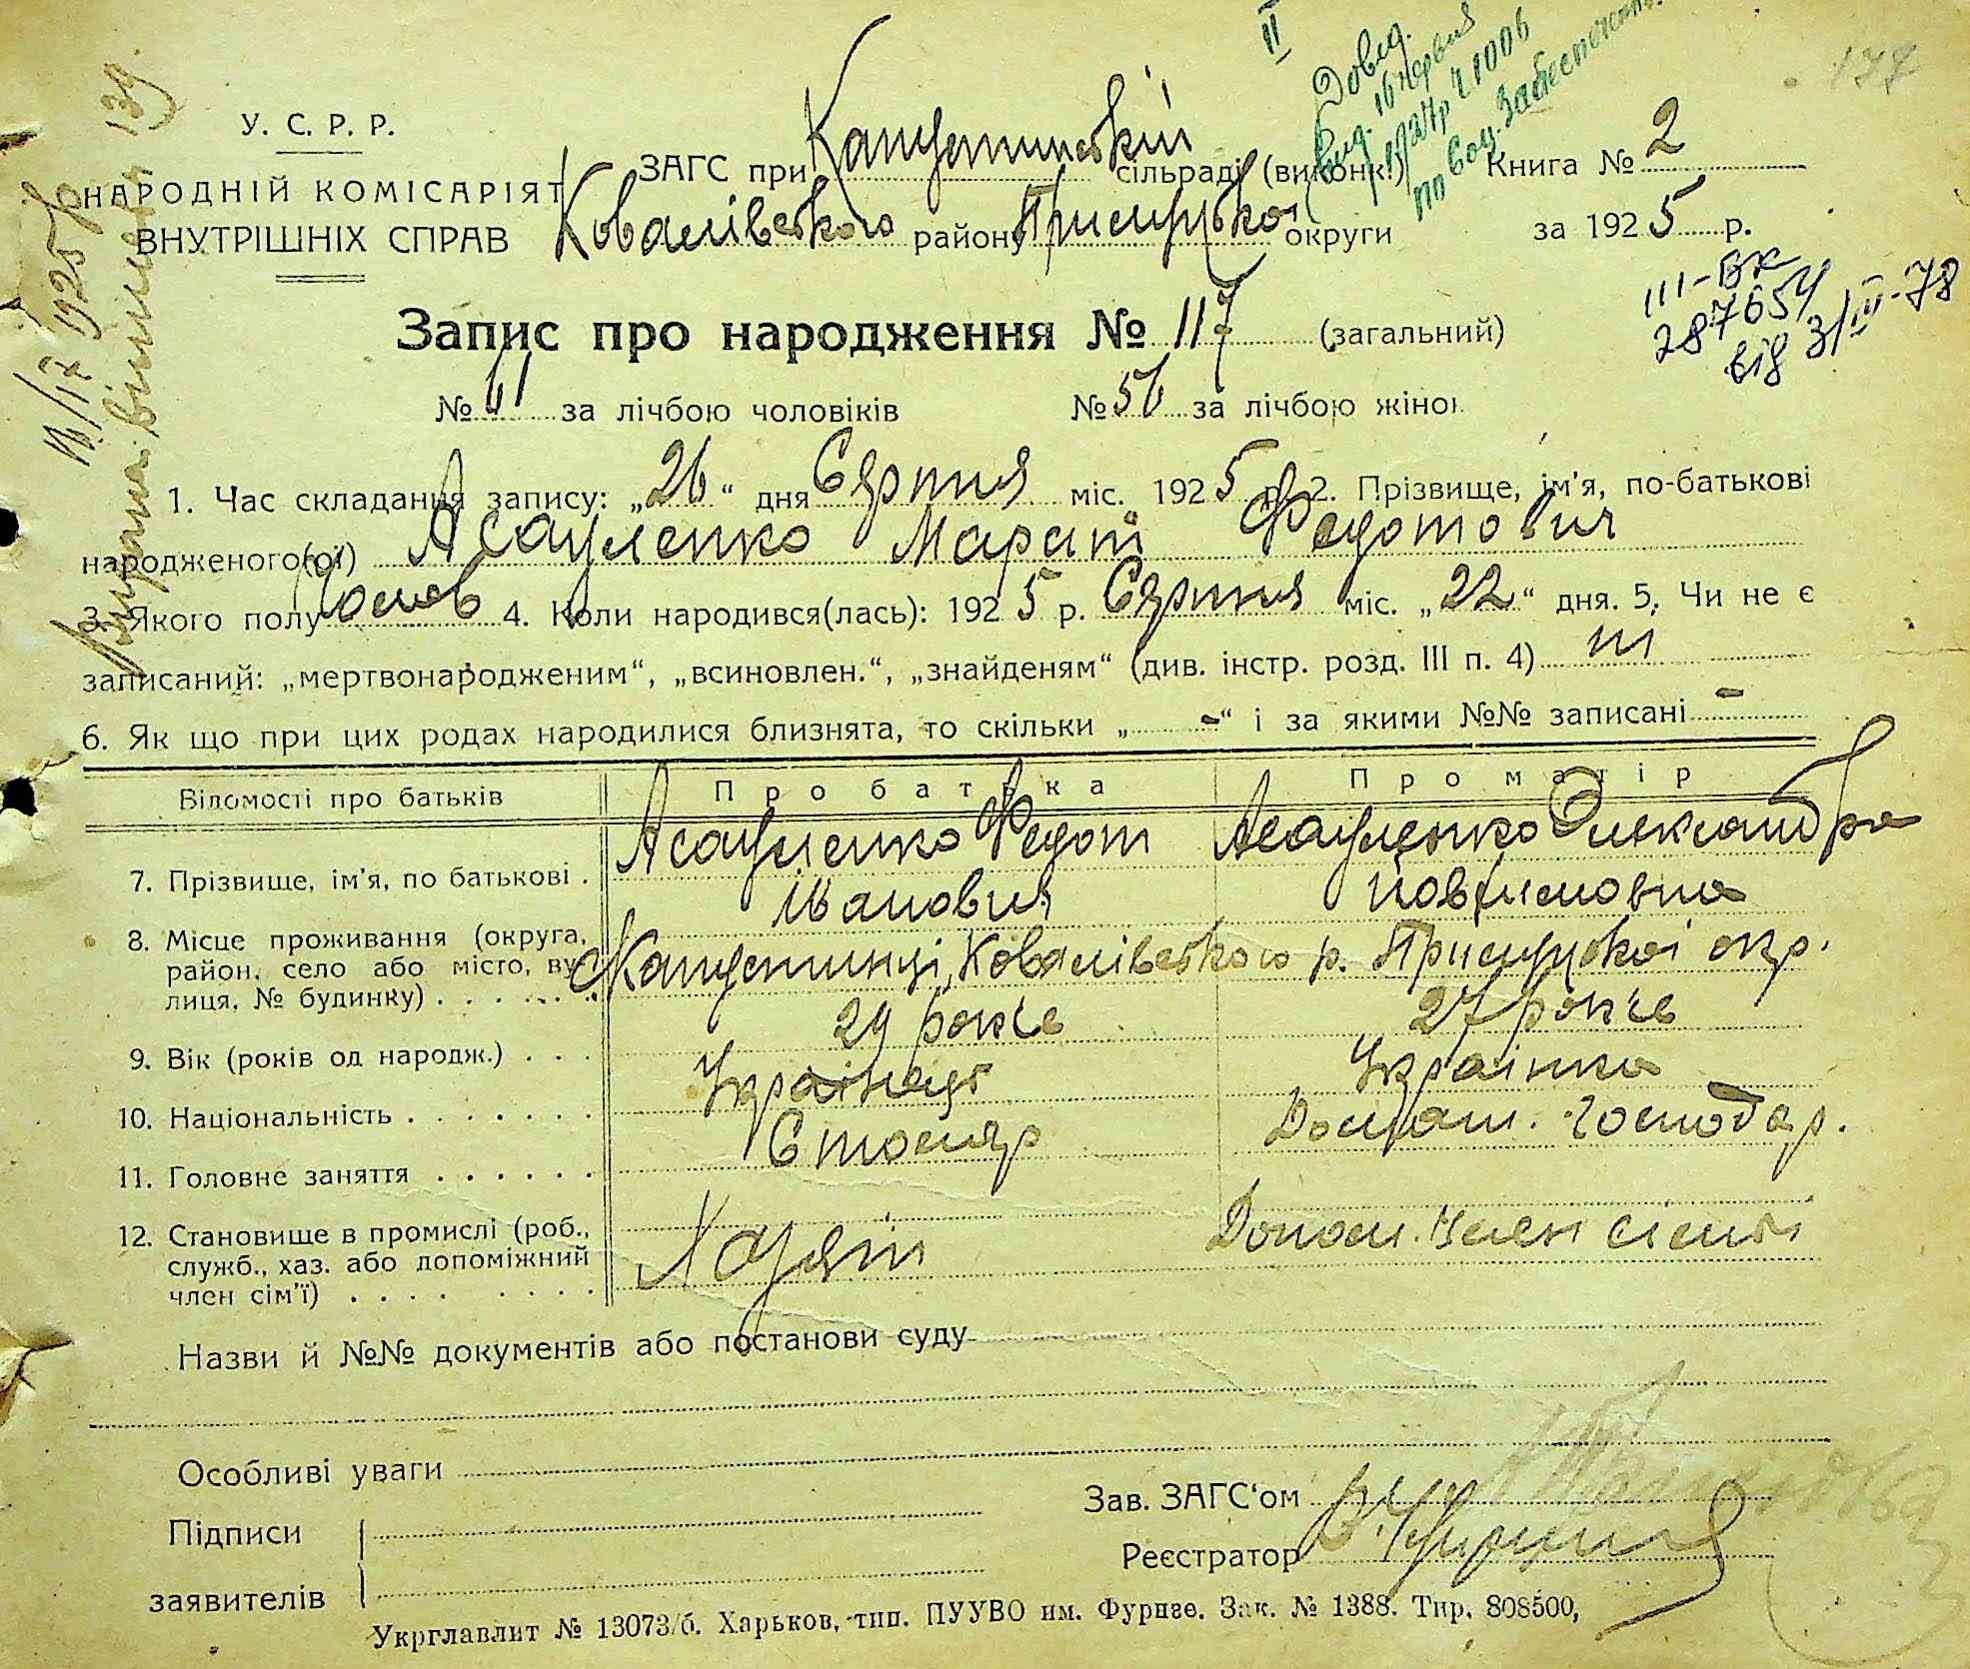 177
II
Довід.
вид. 16 червня
1927 р Ч 1006
по Соц. Забеспечен.
У. С. Р. Р.
НАРОДНІЙ КОМІСАРІЯТ
ВНУТРІШНІХ СПРАВ
ЗАГС при Капустинській сільраді (виконк.)
Ковалівського району Прилуцької округи
Книга № 2
за 1925 р.
III-ВК
287654
від 3/III-78
Запис про народження № 117 (загальний)
№ 61 за лічбою чоловіків № 56 за лічбою жінок
1. Час складання запису: „26“ дня Серпня міс. 1925 р. 2. Прізвище, ім'я, по-батькові
народженого(ої) Асауленко Марат Федотович
3. Якого полу Чолов 4. Коли народився(лась): 1925 р. Серпня міс. „22“ дня. 5. Чи не є
записаний: „мертвонародженим“, „всиновлен.“, „знайденям“ (див. інстр. розд. III п. 4) ні
6. Як що при цих родах народилися близнята, то скільки „-“ і за якими №№ записані -
Відомості про батьків Про батька Про матір
7. Прізвище, ім'я, по батькові . Асауленко Федот Іванович Асауленко Олександра Йовфимовна
8. Місце проживання (округа, район, село або місто, вулиця, № будинку) . . . . . . с. Капустинці, Ковалівського р. Прилуцької окр.
9. Вік (років од народж.) . . . 29 років 27 років
10. Національність . . . . . . . Українець Українка
11. Головне заняття . . . . . . Столяр Домаш. господар.
12. Становище в промислі (роб., служб., хаз. або допоміжний член сім'ї) . . . . . . . . Хазяїн Допом. член сім'ї
Назви й №№ документів або постанови суду
Особливі уваги
Підписи
заявителів
Зав. ЗАГС'ом
Реєстратор
Укрглавлит № 13073/б. Харьков, тип. ПУУВО им. Фрунзе. Зак. № 1388. Тир. 808500,